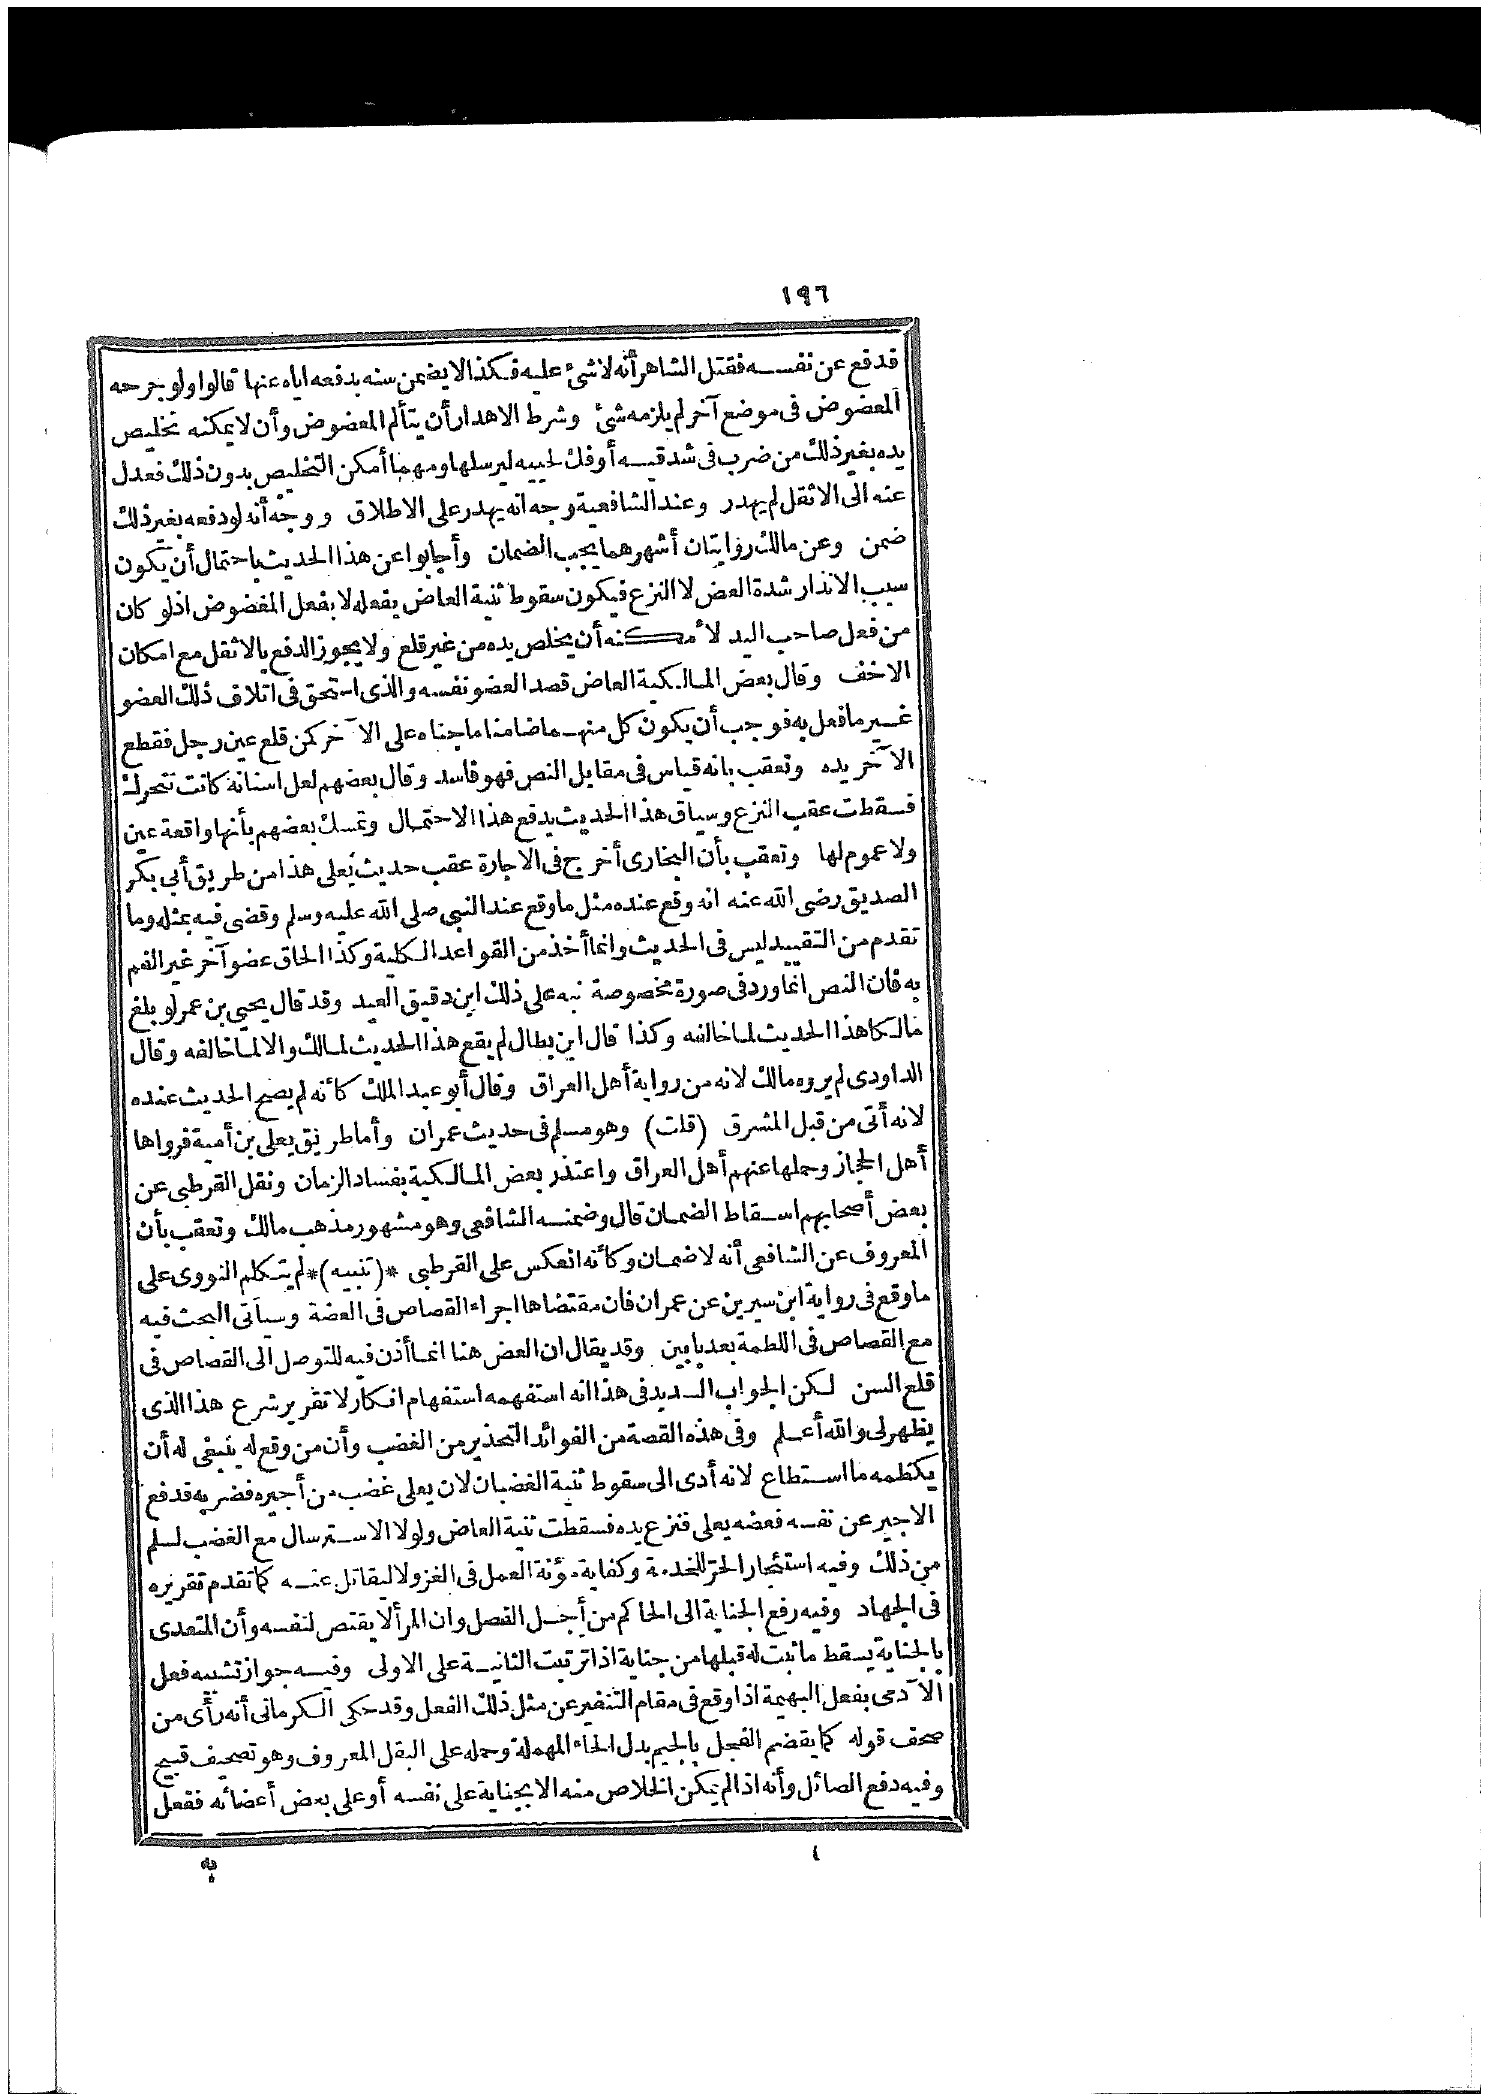 ١٩٦
قد دفع عن نفسه فقتل الشاهر أنه لا شئ عليه فكذا لا يضمن سنه بدفعه اياه عنها قالوا ولو جرحه
المعضوض فى موضع آخر لم يلزمه شئ وشرط الاهدار أن يتألم المعضوض وأن لا يمكنه تخليص
يده بغير ذلك من ضرب فى شدقيه أو فك لحييه ليرسلها ومهما أمكن التخليص بدون ذلك فعدل
عنه الى الاثقل لم يهدر وعند الشافعية وجه انه يهدر على الاطلاق ووجه أنه لو دفعه بغير ذلك
ضمن وعن مالك روايتان أشهرهما يجب الضمان وأجابوا عن هذا الحديث باحتمال أن يكون
سبب الانذار شدة العض لا النزع فيكون سقوط ثنية العاض بفعله لا بفعل المعضوض اذ لو كان
من فعل صاحب اليد لأمكنه أن يخلص يده من غير قلع ولا يجوز الدفع بالاثقل مع امكان
الاخف وقال بعض المالكية العاض قصد العضو نفسه والذى استحق فى اتلاف ذلك العضو
غير ما فعل به فوجب أن يكون كل منهما ضامنا ما جناه على الآخر كمن قلع عين رجل فقطع
الآخر يده وتعقب بانه قياس فى مقابل النص فهو فاسد وقال بعضهم لعل اسنانه كانت تتحرك
فسقطت عقب النزع وسياق هذا الحديث يدفع هذا الاحتمال وتمسك بعضهم بأنها واقعة عين
ولا عموم لها وتعقب بأن البخارى أخرج فى الاجارة عقب حديث يعلى هذا من طريق أبى بكر
الصديق رضى الله عنه انه وقع عنده مثل ما وقع عند النبى صلى الله عليه وسلم وقضى فيه بمثله وما
تقدم من التقييد ليس فى الحديث وانما أخذ من القواعد الكلية وكذا الحاق عضو آخر غير الفم
به فان النص انما ورد فى صورة مخصوصة نبه على ذلك ابن دقيق العيد وقد قال يحيى بن عمر لو بلغ
مالكا هذا الحديث لما خالفه وكذا قال ابن بطال لم يقع هذا الحديث لمالك والا لما خالفه وقال
الداودى لم يروه مالك لانه من رواية أهل العراق وقال أبو عبد الملك كأنه لم يصح الحديث عنده
لانه أتى من قبل المشرق (قلت) وهو مسلم فى حديث عمران وأما طريق يعلى بن أمية فرواها
أهل الحجاز وحملها عنهم أهل العراق واعتذر بعض المالكية بفساد الزمان ونقل القرطبى عن
بعض أصحابهم اسقاط الضمان قال وضمنه الشافعى وهو مشهور مذهب مالك وتعقب بأن
المعروف عن الشافعى أنه لا ضمان وكأنه انعكس على القرطبى *(تنبيه)* لم يتكلم النووى على
ما وقع فى رواية ابن سيرين عن عمران فان مقتضاها اجراء القصاص فى العضة وسيأتى البحث فيه
مع القصاص فى اللطمة بعد بابين وقد يقال ان العض هنا انما أذن فيه للتوصل الى القصاص فى
قلع السن لكن الجواب السديد فى هذا انه استفهمه استفهام انكار لا تقرير شرع هذا الذى
يظهر لى والله أعلم وفى هذه القصة من الفوائد التحذير من الغضب وأن من وقع له ينبغى له أن
يكظمه ما استطاع لانه أدى الى سقوط ثنية الغضبان لان يعلى غضب من أجيره فضربه فدفع
الاجير عن نفسه فعضه يعلى فنزع يده فسقطت ثنية العاض ولولا الاسترسال مع الغضب لسلم
من ذلك وفيه استئجار الحر للخدمة وكفاية مؤنة العمل فى الغزو لا ليقاتل عنه كما تقدم تقريره
فى الجهاد وفيه رفع الجناية الى الحاكم من أجل الفصل وان المرأ لا يقتص لنفسه وأن المتعدى
بالجناية يسقط ما ثبت له قبلها من جناية اذا ترتبت الثانية على الاولى وفيه جواز تشبيه فعل
الآدمى بفعل البهيمة اذا وقع فى مقام التنفير عن مثل ذلك الفعل وقد حكى الكرمانى أنه رأى من
صحف قوله كما يقضم الفجل بالجيم بدل الحاء المهملة وحمله على البقل المعروف وهو تصحيف قبيح
وفيه دفع الصائل وأنه اذا لم يمكن الخلاص منه الا بجناية على نفسه أو على بعض أعضائه ففعل
به